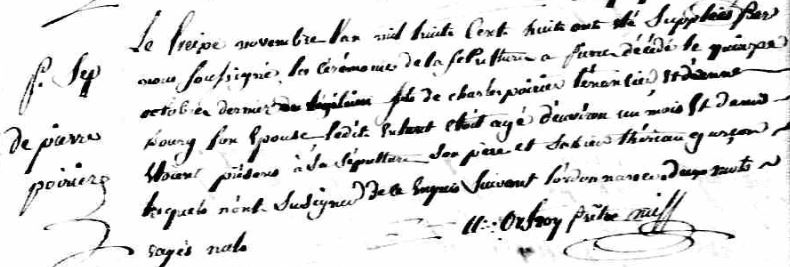 f. Sep
de pierre
poirier
Le treize novembre l'an mil huite Cent huite ont été Suppléés par
nous Soussigné les Cérémonies de la Sépulture a pierre décédé le quinze
octobre dernier fils de charles poirier et d'enne
bourg Son Epouse ledit Enfant etoit agé d'environ un mois Et demie
Etoient présens à Sa Sépulture Son père et Theriau garçon
lesquels n'ont Su Signer de ce Enquis Suivant l'ordonnance deux mots
rayés nuls
prêtre miss